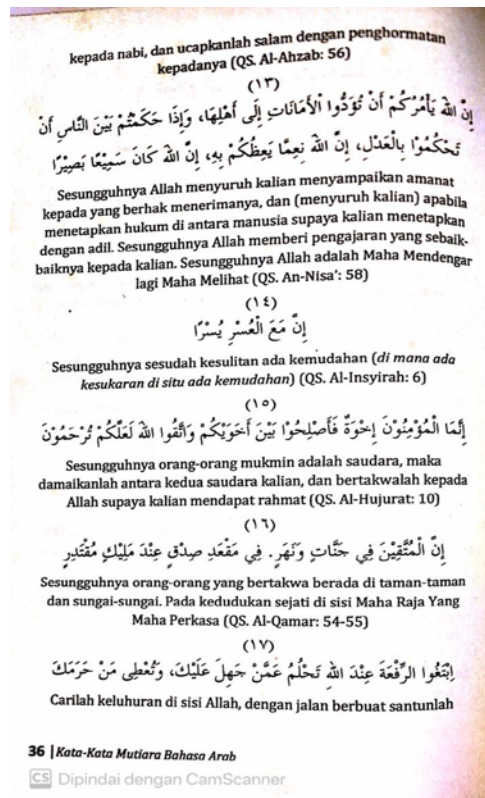 kepada nabi, dan ucapkanlah salam dengan penghormatan
kepadanya (QS. Al-Ahzab: 56)
(١٣)
إِنَّ اللهَ يَأْمُرُكُمْ أَنْ تُؤَدُّوا الْأَمَانَاتِ إِلَى أَهْلِهَا، وَإِذَا حَكَمْتُمْ بَيْنَ النَّاسِ أَنْ
تَحْكُمُوْا بِالْعَدْلِ، إِنَّ اللهَ نِعِمَّا يَعِظُكُمْ بِهِ، إِنَّ اللهَ كَانَ سَمِيْعًا بَصِيْرًا
Sesungguhnya Allah menyuruh kalian menyampaikan amanat
kepada yang berhak menerimanya, dan (menyuruh kalian) apabila
menetapkan hukum di antara manusia supaya kalian menetapkan
dengan adil. Sesungguhnya Allah memberi pengajaran yang sebaik-
baiknya kepada kalian. Sesungguhnya Allah adalah Maha Mendengar
lagi Maha Melihat (QS. An-Nisa’: 58)
(١٤)
إِنَّ مَعَ الْعُسْرِ يُسْرًا
Sesungguhnya sesudah kesulitan ada kemudahan (di mana ada
kesukaran di situ ada kemudahan) (QS. Al-Insyirah: 6)
(١٥)
إِنَّمَا الْمُؤْمِنُوْنَ إِخْوَةٌ فَأَصْلِحُوْا بَيْنَ أَخَوَيْكُمْ وَاتَّقُوا اللهَ لَعَلَّكُمْ تُرْحَمُوْنَ
Sesungguhnya orang-orang mukmin adalah saudara, maka
damaikanlah antara kedua saudara kalian, dan bertakwalah kepada
Allah supaya kalian mendapat rahmat (QS. Al-Hujurat: 10)
(١٦)
إِنَّ الْمُتَّقِيْنَ فِي جَنَّاتٍ وَنَهَرٍ. فِي مَقْعَدِ صِدْقٍ عِنْدَ مَلِيْكٍ مُقْتَدِرٍ
Sesungguhnya orang-orang yang bertakwa berada di taman-taman
dan sungai-sungai. Pada kedudukan sejati di sisi Maha Raja Yang
Maha Perkasa (QS. Al-Qamar: 54-55)
(١٧)
اِبْتَغُوا الرِّفْعَةَ عِنْدَ اللهِ تَحْلُمُ عَمَّنْ جَهِلَ عَلَيْكَ، وَتُعْطِى مَنْ حَرَمَكَ
Carilah keluhuran di sisi Allah, dengan jalan berbuat santunlah
36 | Kata-Kata Mutiara Bahasa Arab
CS Dipindai dengan CamScanner